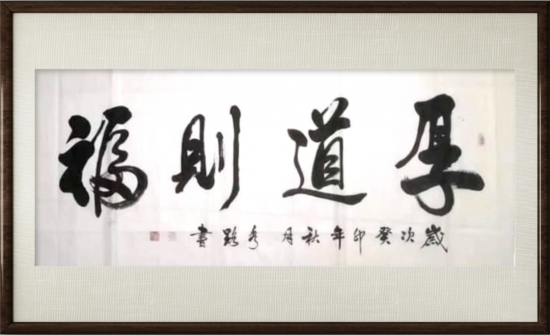 厚道則福
歲次癸卯年秋月 書